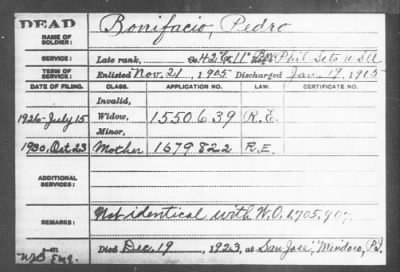 DEAD
NAME OF SOLDIER: Bonifacio, Pedro
SERVICE: Late rank, Co. 42 & 11" Co. Phil Scts U.S.A
TERM OF SERVICE: Enlisted Nov. 21, 1905 Discharged Jan. 19, 1915
DATE OF FILING. CLASS. APPLICATION NO. LAW. CERTIFICATE NO.
Invalid,
1926-July 15 Widow, 1550639 R.E.
Minor,
1930, Oct. 23 Mother 1679822 R.E.
ADDITIONAL SERVICES:
REMARKS: Not identical with W.O. 1705,907
Died Dec. 19, 1923, at San Jose, Mindoro, P.I.